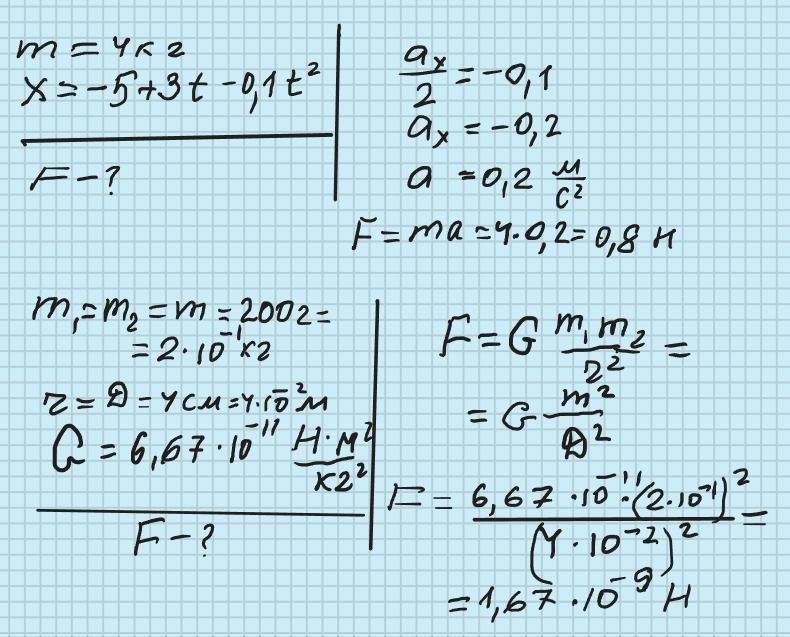 m = 4кг
x = -5+3t-0,1t²
F-?
aₓ/2 = -0,1
aₓ = -0,2
a = 0,2 м/с²
F = ma = 4·0,2 = 0,8 Н
m₁ = m₂ = m = 200г =
= 2·10⁻¹ кг
r = D = 4см = 4·10⁻² м
G = 6,67·10⁻¹¹ Н·м²/кг²
F-?
F = G m₁m₂/r² =
= G m²/D²
F = 6,67·10⁻¹¹·(2·10⁻¹)²/(4·10⁻²)² =
= 1,67·10⁻⁹ Н